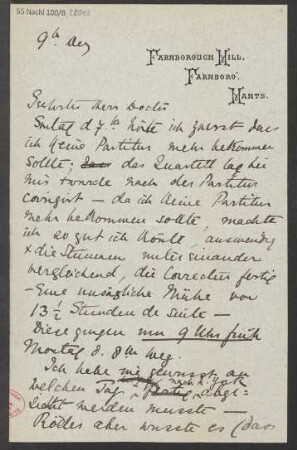 55 Nachl 100/B,
9th Dez
FARNBOROUGH HILL,
FARNBORO',
HANTS.
Geehrter Herr Doctor
Sontag d 7ten hörte ich zuerst dass
ich keine Partitur mehr bekommen
sollte; das Quartett lag bei
mir & wurde nach der Partitur
corrigirt – da ich keine Partitur
mehr bekommen sollte, machte
ich so gut ich konte, auswendig
& die Stimmen unter einander
vergleichend, die Correctur fertig
– Eine unsägliche Mühe von
13 1/2 Stunden de suite –
Diese gingen um 9 Uhr früh
Montag d. 8ten weg.
Ich habe nie gewusst, an
welchem Tag nach N. York
schickt werden musste –
Röder aber wusste es (dass